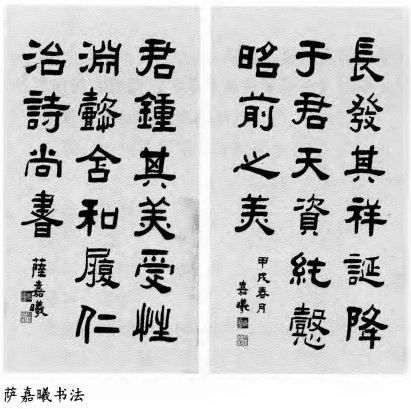 長發其祥誕降
于君天資純懿
昭前之美
甲戌春月
嘉曦
君鍾其美受性
淵懿含和履仁
治詩尚書
薩嘉曦
萨嘉曦书法